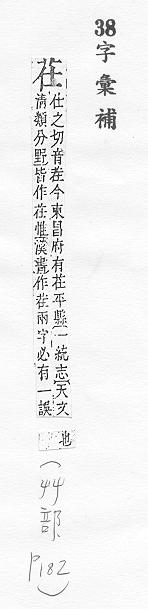 38字彙補
茌
仕之切音在今東昌府有茌平縣[一統志][天文
清類分野皆作茌惟漢書作茬兩字必有一誤
也
(艸部
P182)